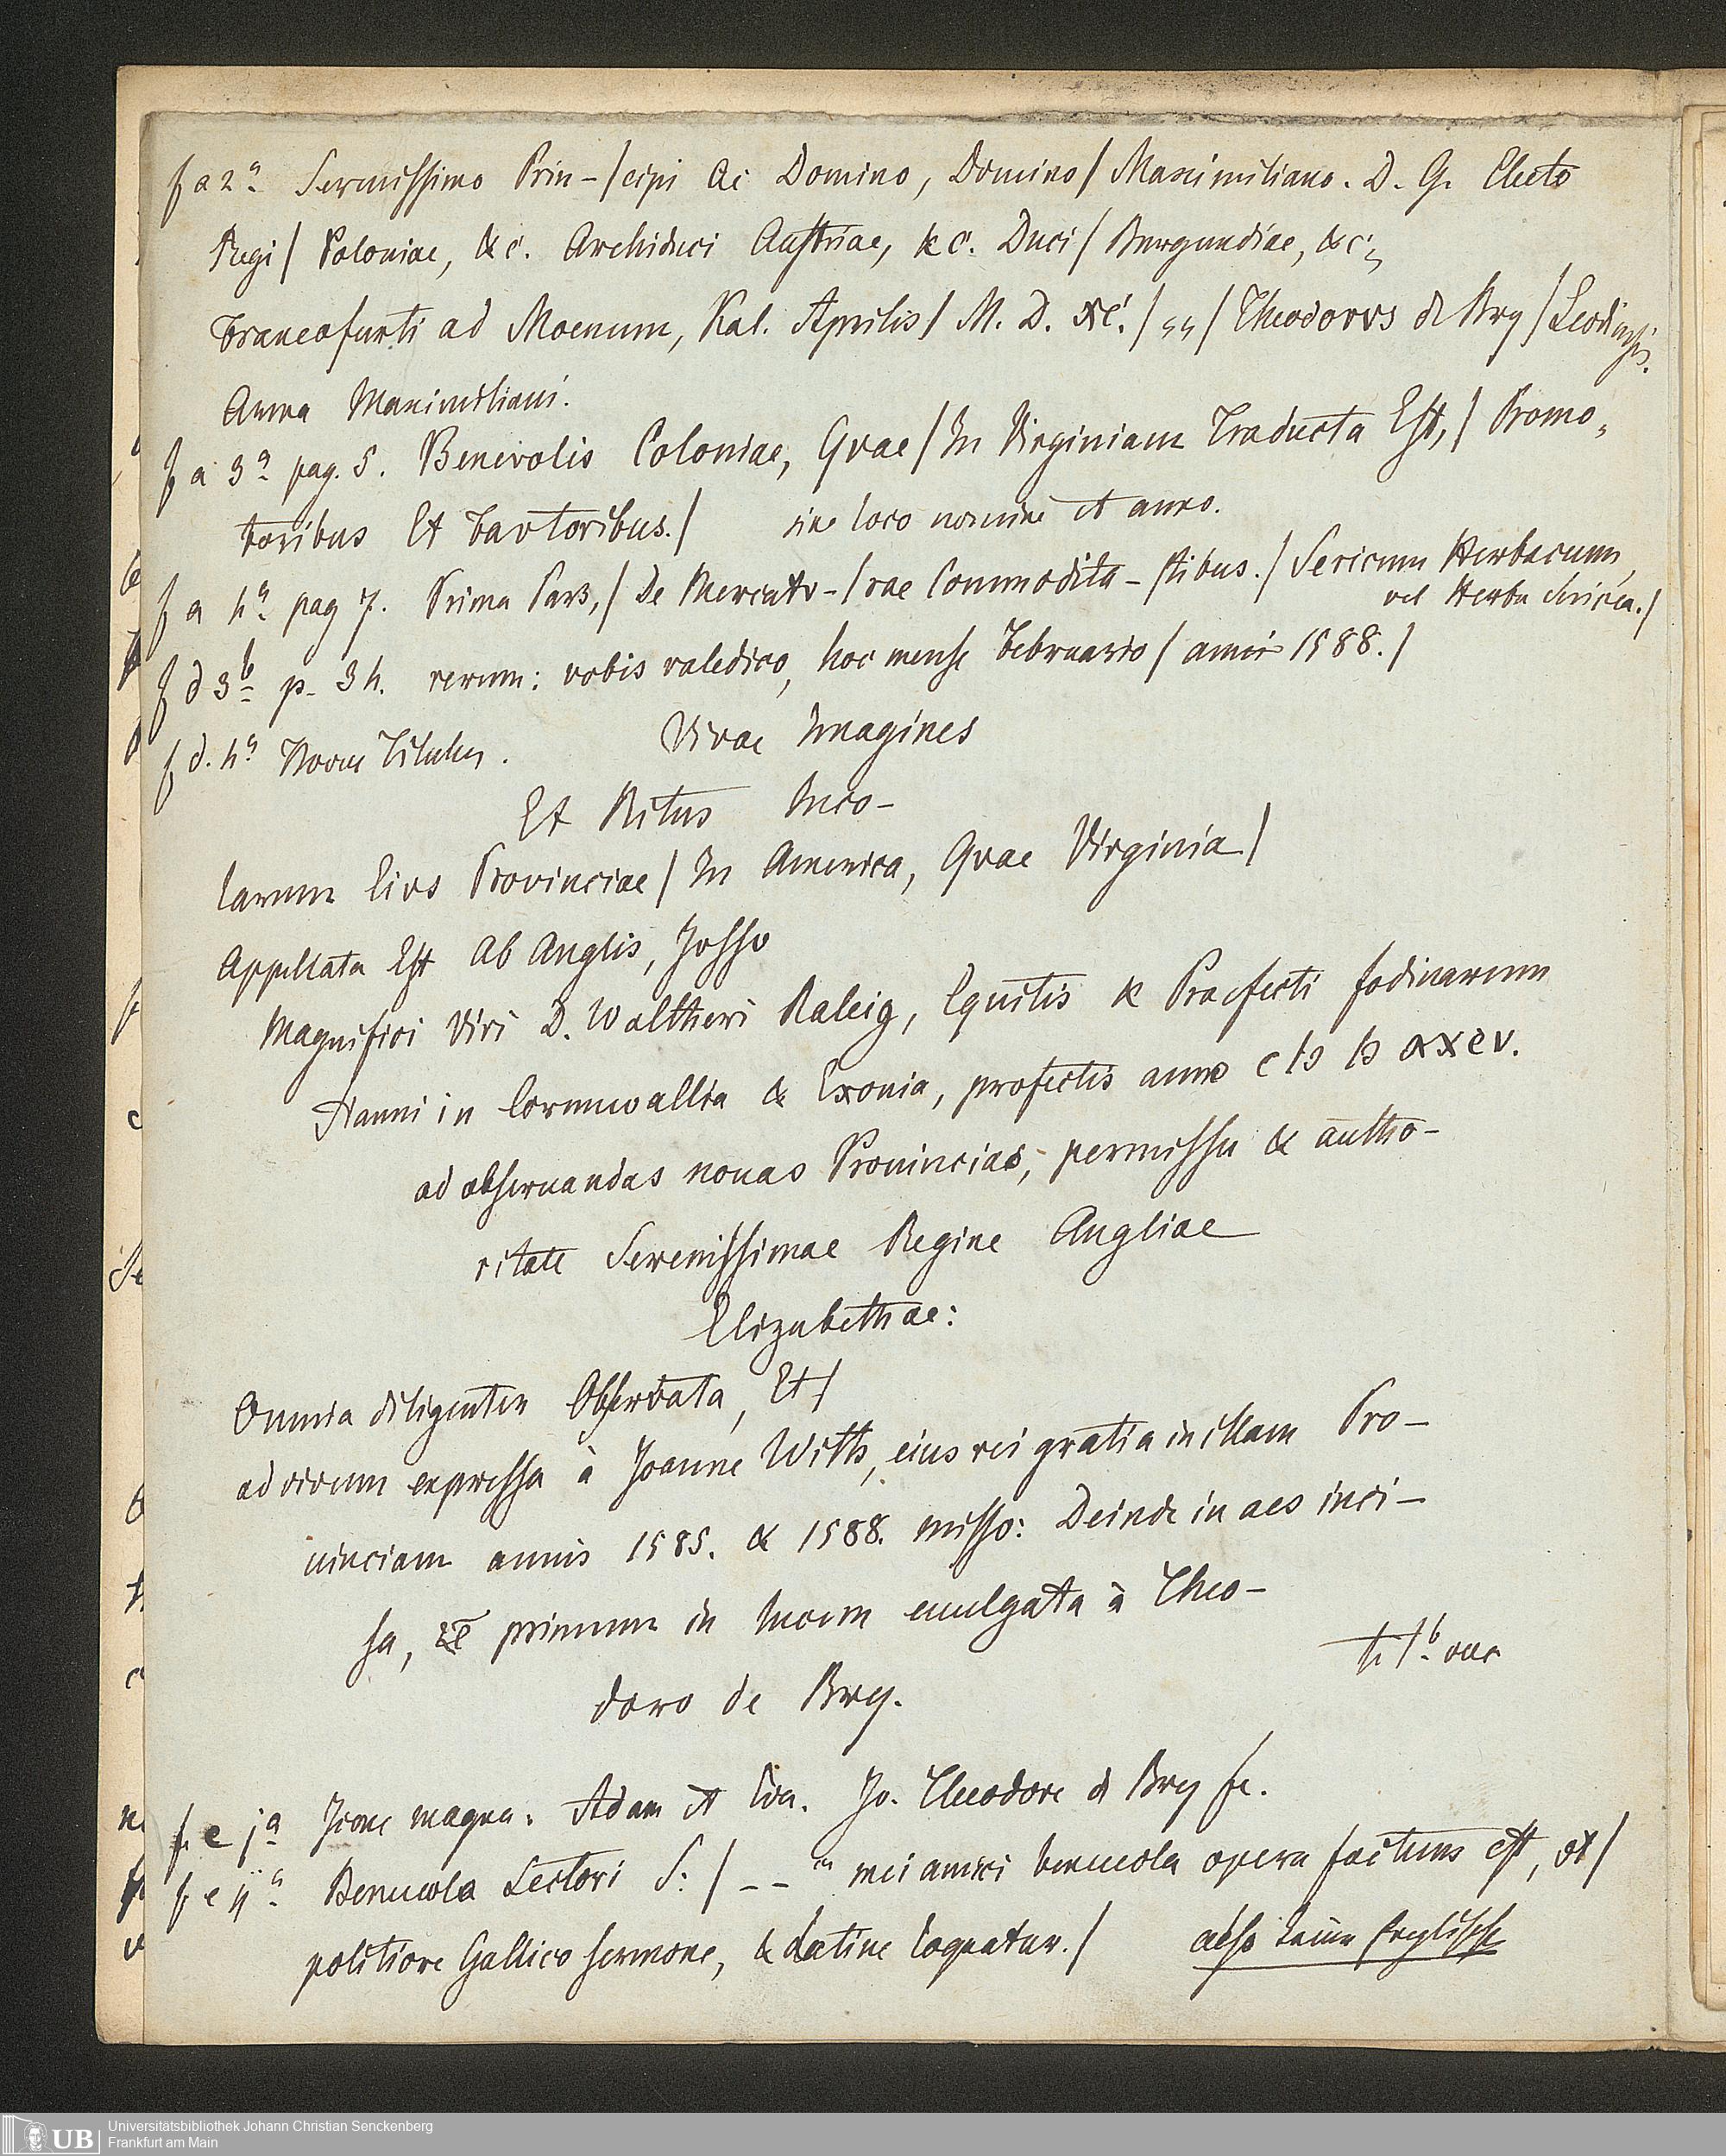 f a 2ª Serenissimo Prin-/cipi Ac Domino, Domino/ Maximiliano. D. G. Electo
Regi/ Poloniae, &c. Archiduci Austriae, &c. Duci/ Burgundiae, &c.
Francofurti ad Moenum, Kal. Aprilis/ M. D. XC./ „/ Theodorvs de Bry/ Leodiensis.
Arma Maximiliani.
f a 3ª pag. 5. Benevolis Coloniae, Qvae/ In Virginiam Traducta Est,/ Promo-
toribus Et Favtoribus./ sine loco nomine et anno.
f a 4ª pag 7. Prima Pars,/ De Mercatv-/rae Commodita-/tibus./ Sericum Herbaceum,
vel Herba Serica./
f d 3ᵇ p. 34. rerum: vobis valedico, hoc mense Februario/ anni 1588./
f d. 4ª Novus Titulus. Vivae Imagines
Et Ritus Inco-
larum Eivs Provinciae/ In America, Qvae Virginia/
Appellata Est Ab Anglis, Jussv
Magnifici Viri D. Waltheri Raleig, Equitis & Praefecti fodinarum
Stanni in Cornuwallia & Exonia, profectis anno c Iↄ Iↄ xxcv.
ad obseruandas nouas Prouincias, permissu & autho-
ritate Serenissimae Regine Angliae
Elizabethae:
Omnia diligenter Observata, Et/
ad vivum expressa à Joanne With, eius rei gratia in illam Pro-
uinciam annis 1585. & 1588. misso: Deinde in aes inci-
sa, & primum in lucem euulgata à Theo-
doro de Bry.
f. e jª Icone magna. Adam et Eva. Jo. Theodore de Bry fe.
f e ijª Beneuola Lectori S:/ -- mei amici beneuola opera factum est, vt/
politiore Gallico sermone, & Latine loquatur./ also kein Englisch